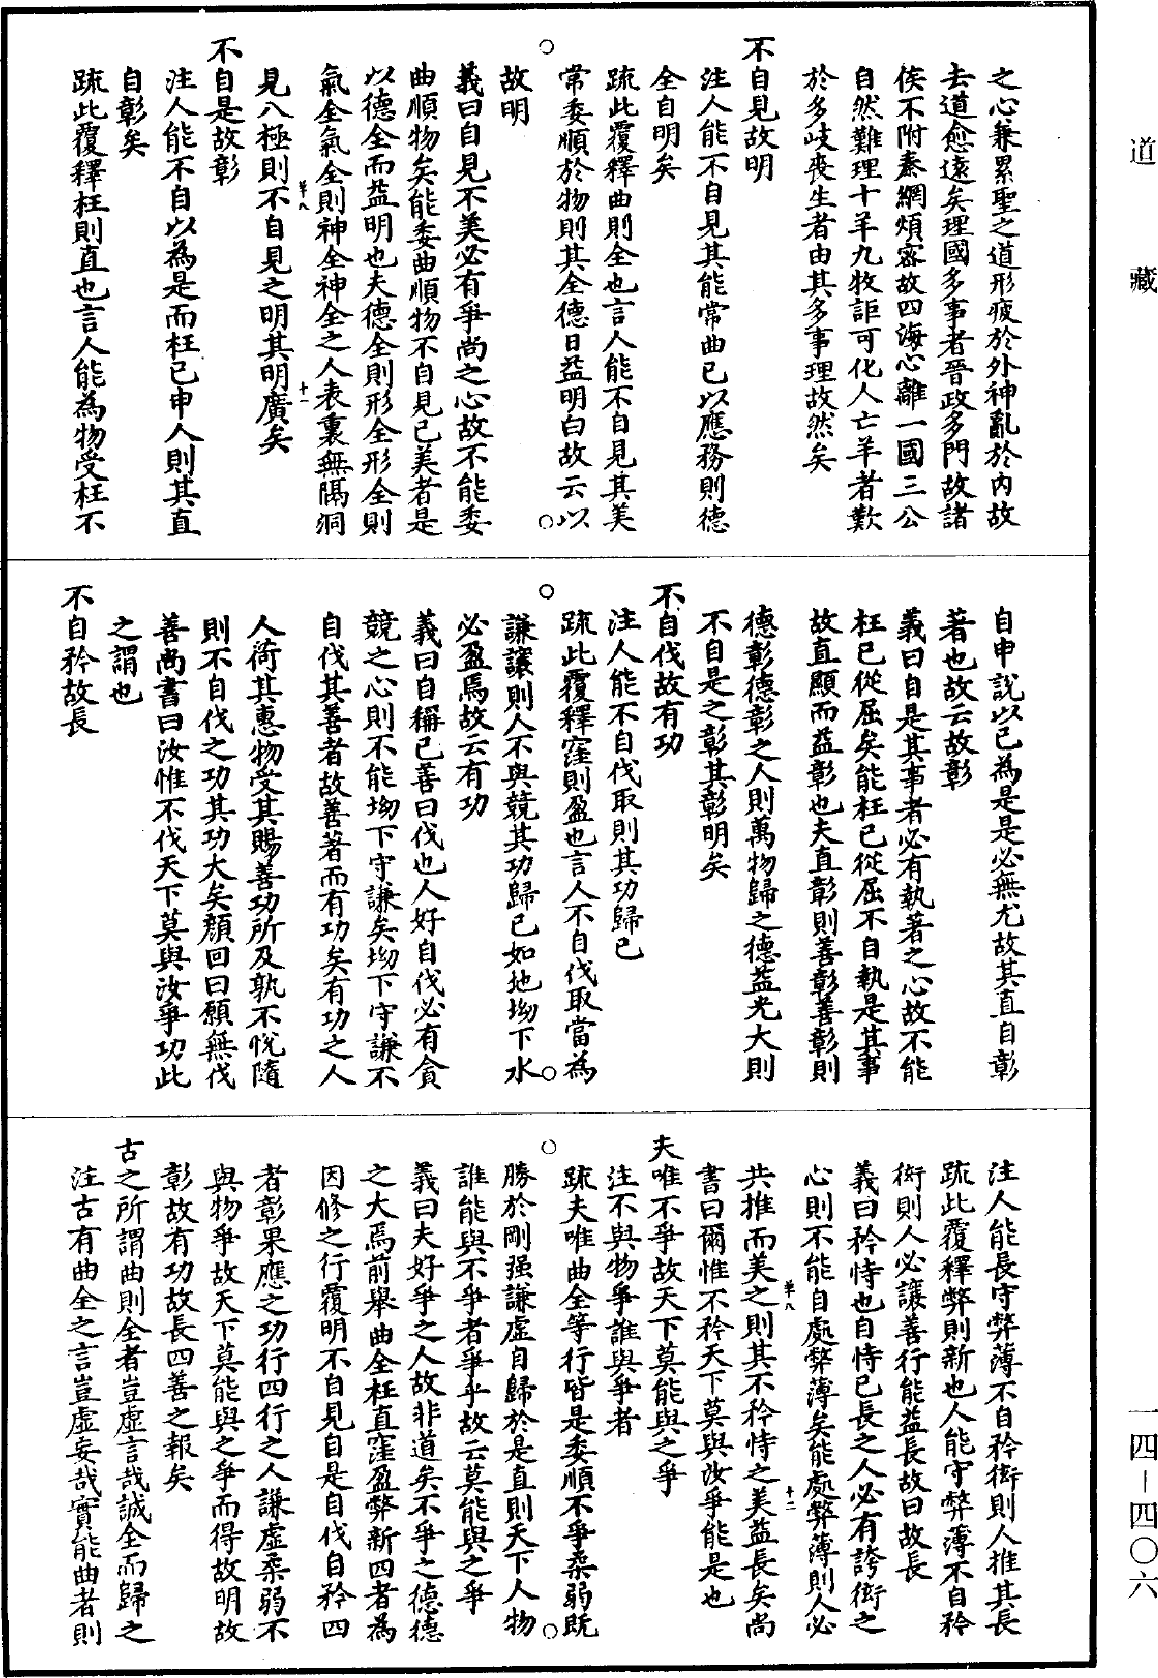 道藏
之心兼累聖之道形疲於外神亂於內故
去道愈遠矣理國多事者晉政多門故諸
侯不附秦網煩密故四海心離一國三公
自然難理十羊九牧詎可化人亡羊者歎
於多岐喪生者由其多事理故然矣
不自見故明
注人能不自見其能常曲已以應務則德
全自明矣
疏此覆釋曲則全也言人能不自見其美
常委順於物則其全德日益明白故云以
故明
義曰自見不美必有爭尚之心故不能委
曲順物矣能委曲順物不自見已美者是
以德全而益明也夫德全則形全形全則
氣全氣全則神全神全之人表裏無隔洞
見八極則不自見之明其明廣矣
不自是故彰
注人能不自以為是而枉已申人則其直
自彰矣
疏此覆釋枉則直也言人能為物受枉不
自申說以已為是是必無尤故其直自彰
著也故云故彰
義曰自是其事者必有執著之心故不能
枉已從屈矣能枉已從屈不自執是其事
故直顯而益彰也夫直彰則善彰善彰則
德彰德彰之人則萬物歸之德益光大則
不自是之彰其彰明矣
不自伐故有功
注人能不自伐取則其功歸已
疏此覆釋窪則盈也言人不自伐取當為
謙讓則人不與競其功歸已如地坳下水
必盈焉故云有功
義曰自稱已善曰伐也人好自伐必有貪
競之心則不能坳下守謙矣坳下守謙不
自伐其善者故善著而有功矣有功之人
人荷其惠物受其賜善功所及孰不悅隨
則不自伐之功其功大矣顏回曰願無伐
善尚書曰汝惟不伐天下莫與汝爭功此
之謂也
不自矜故長
注人能長守弊薄不自矜衒則人推其長
疏此覆釋弊則新也人能守弊薄不自矜
衒則人必讓善行能益長故曰故長
義曰矜恃也自恃已長之人必有誇衒之
心則不能自處弊薄矣能處弊薄則人必
共推而美之則其不矜恃之美益長矣尚
書曰爾惟不矜天下莫與汝爭能是也
夫唯不爭故天下莫能與之爭
注不與物爭誰與爭者
疏夫唯曲全等行皆是委順不爭柔弱既
勝於剛强謙虛自歸於是直則天下人物
誰能與不爭者爭乎故云莫能與之爭
義曰夫好爭之人故非道矣不爭之德德
之大焉前舉曲全枉直窪盈弊新四者為
因修之行覆明不自見自是自伐自矜四
者彰果應之功行四行之人謙虛柔弱不
與物爭故天下莫能與之爭而得故明故
彰故有功故長四善之報矣
古之所謂曲則全者豈虛言哉誠全而歸之
注古有曲全之言豈虛妄哉實能曲者則
一四－四〇六